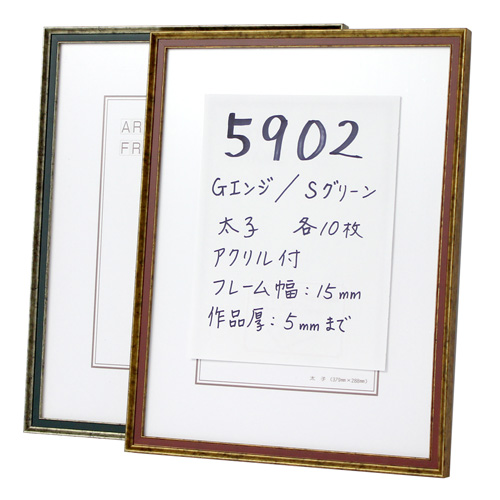 AR
FR
5902
Gエンジ/Sグリーン
太子 各10枚
アクリル付
フレーム幅:15mm
作品厚:5mmまで
太 子 (379mm×288mm)